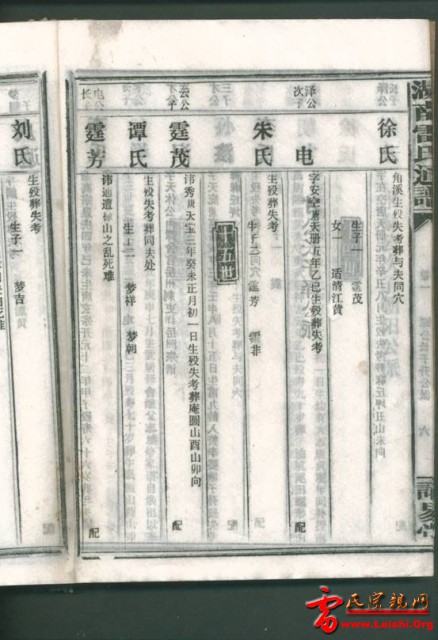 湖南雷氏通譜
六
徐氏
角溪生殁失考葬与夫同穴
生子一 霆茂
女一 适清江黄
泽公次子
电
字安空唐天册五年乙巳生殁葬失考
配
朱氏
生殁葬失考
生子二 霆芳 霆非
十五世
云公子
霆茂
讳秀唐天宝二年癸未正月初一日生殁失考葬庵圆山酉山卯向
配
谭氏
生殁失考葬同夫处
生子二 梦祥 梦朝
电公长子
霆芳
讳通遭禄山之乱死难
配
刘氏
生殁葬失考
生子一 梦吉
雷氏宗親网
www.Leishi.Org